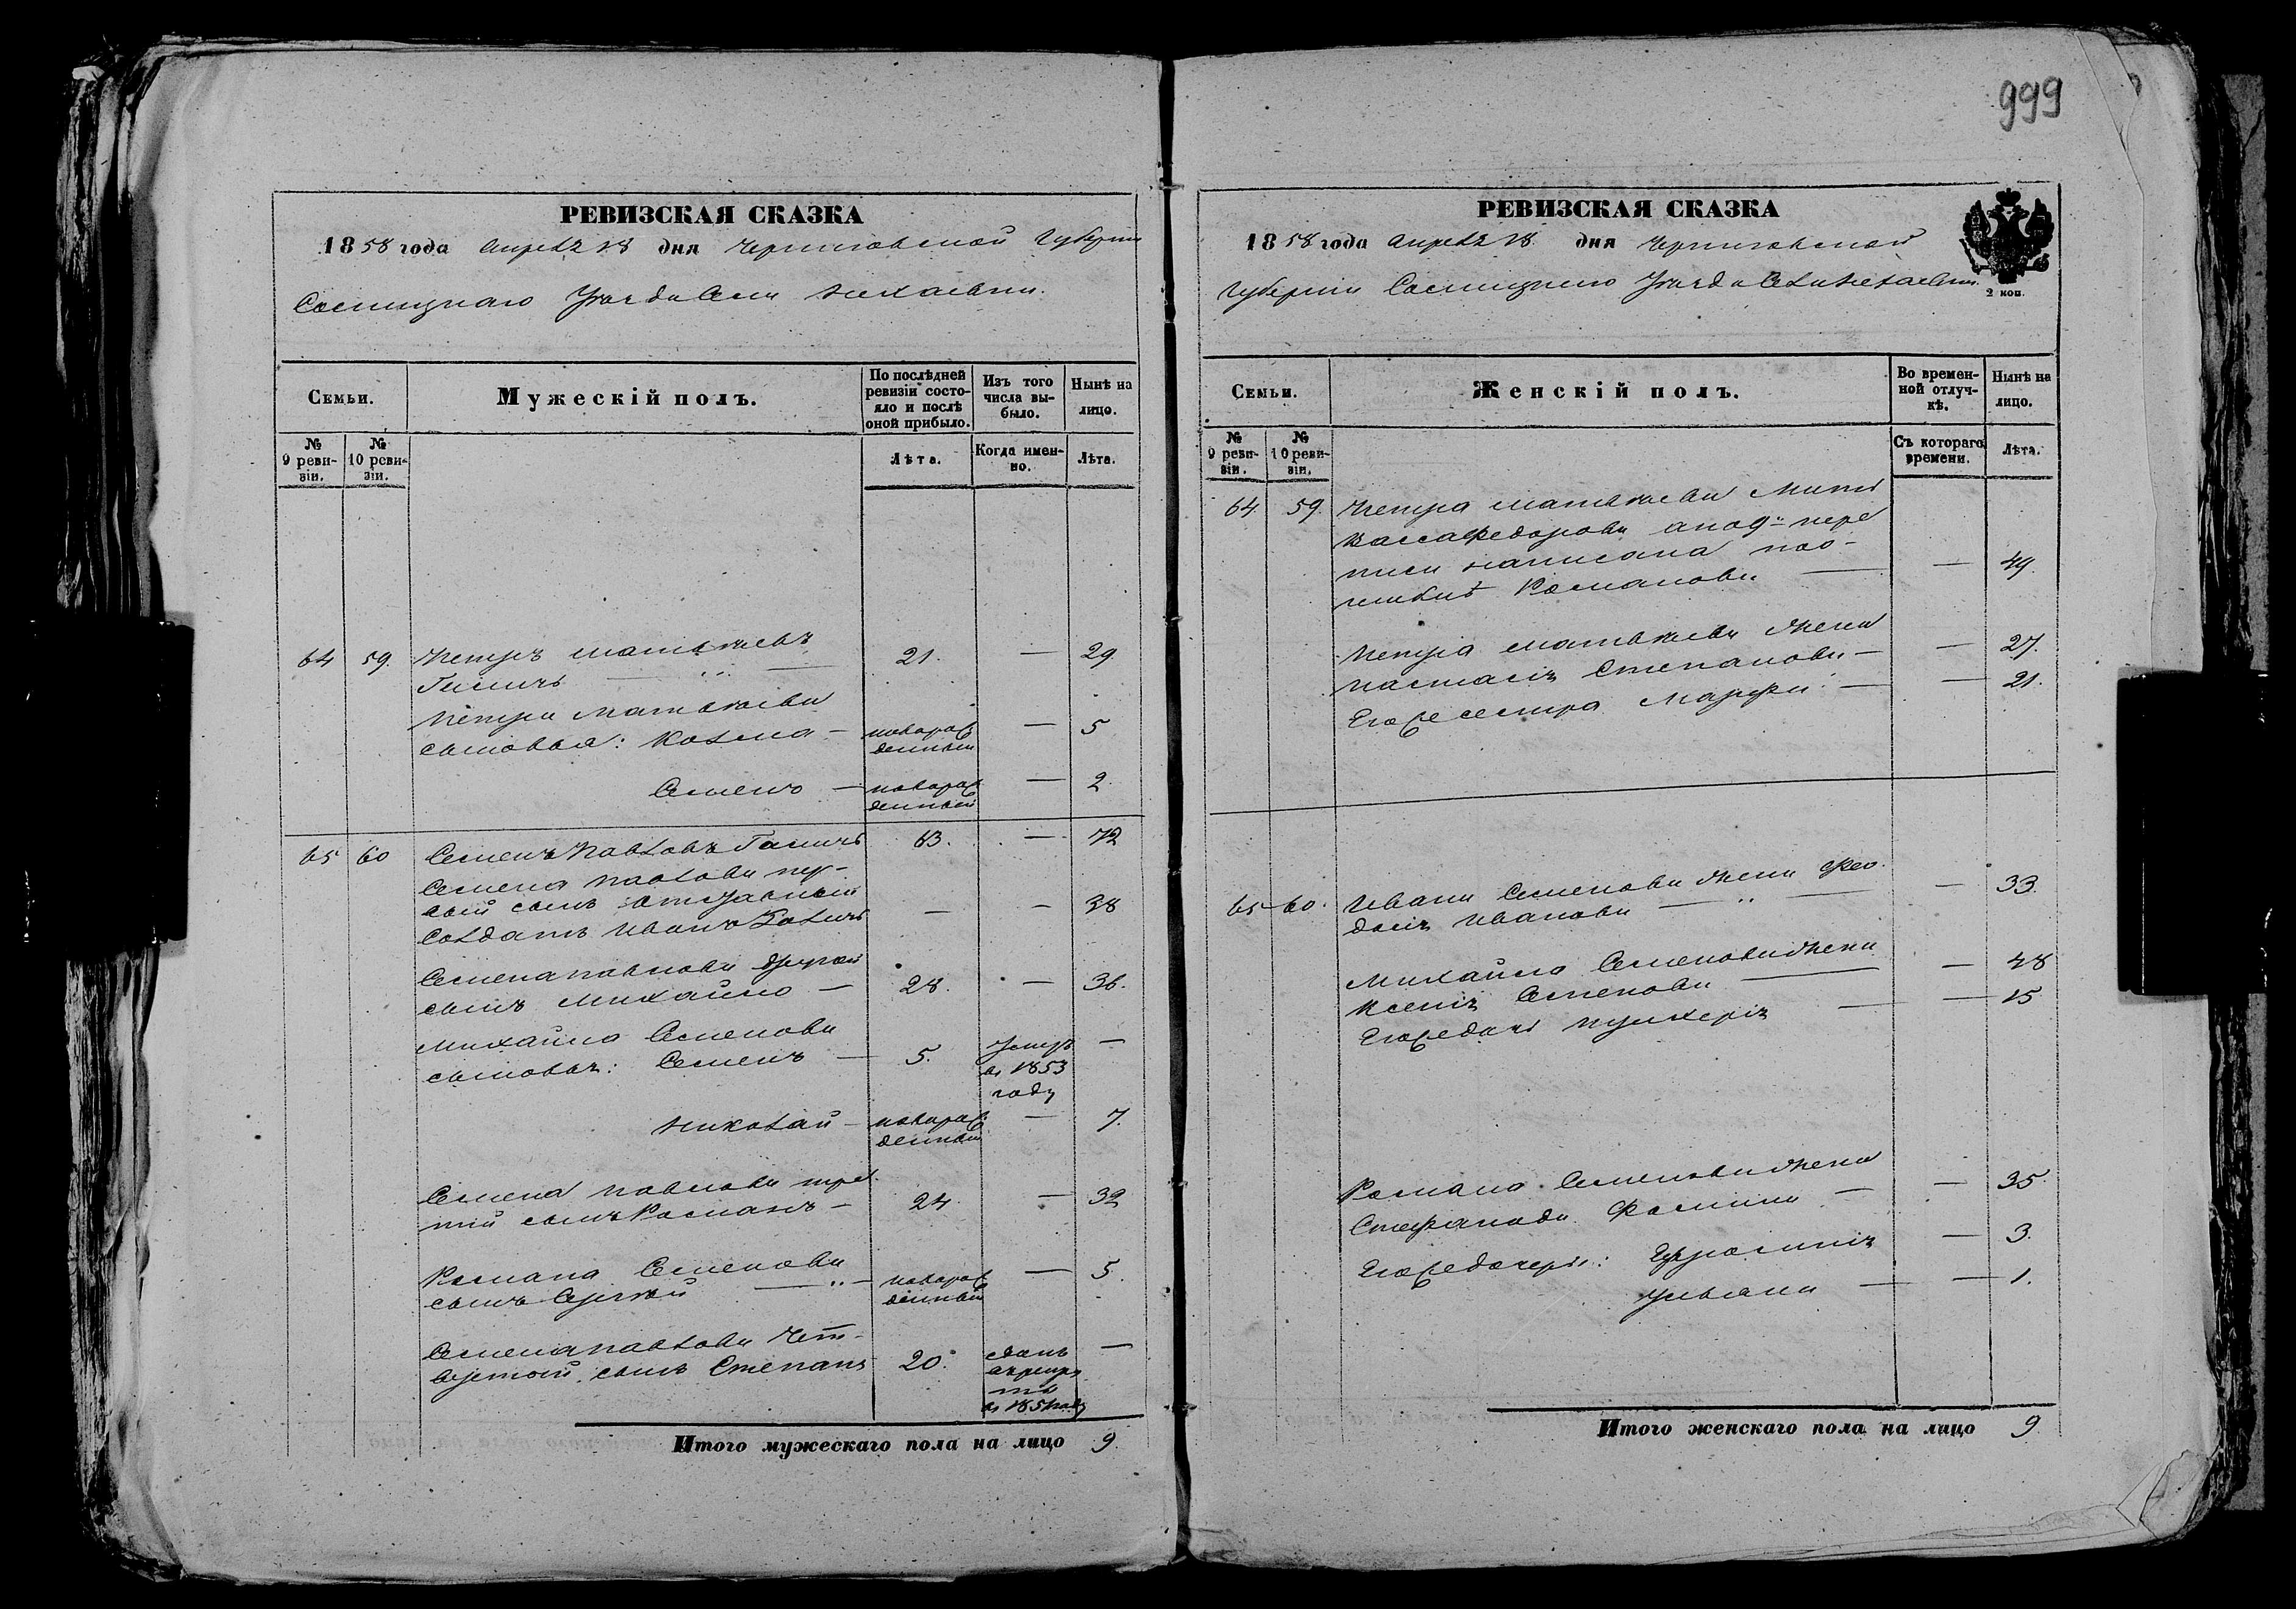 999
РЕВИЗСКАЯ СКАЗКА
1858 года Апреля 18 дня Черниговской Губернии
Сосницкаго Уезда Села
Семьи.
Мужескій полъ.
По послѣдней ревизіи состояло и послѣ оной прибыло.
Изъ того числа выбыло.
Нынѣ на лицо.
№ 9 ревизіи.
№ 10 ревизіи.
Лѣта.
Когда именно.
Лѣта.
64 59. Петръ Матвѣевъ 21. — 29.
Петра Матвѣева
сыновья: Козма — новорож 5
денный
Семенъ — новорож — 2.
денный
65 60 Семенъ Павловъ 63. — 72
Семена Павлова пер-
вый сынъ отставный — — 38
Солдатъ Иванъ
Семена Павлова другой
сынъ Михайло — 28. — 36.
Михайла Семенова
сыновья: Семенъ — 5. умеръ —
в 1853
году
Николай — новорож — 7.
денный
Семена Павлова тре
тій сынъ Романъ — 24. — 32
Романа Семенова
сынъ Сергей — новорож — 5.
денный
Семена Павлова Чет-
вертой сынъ Степанъ 20. сданъ —
врекру
ты
в 185 году
Итого мужескаго пола на лицо 9.
РЕВИЗСКАЯ СКАЗКА
1858 года Апреля 18. дня Черниговской
Губернии Сосницкаго Уезда Села
2 коп.
Семьи.
Женскій полъ.
Во временной отлучкѣ.
Нынѣ на лицо.
№ 9 ревизіи.
№ 10 ревизіи.
Съ котораго времени.
Лѣта.
64. 59. Петра Матвѣева Мать
Васса Федорова а по 9й пере
писи написана по о-
шибкѣ Романова — — 49.
Петра Матвѣева жена
Настасія Степанова — — 27.
Его же сестра Марфа — — 21.
65 60. Ивана Семенова жена Фео-
досія Иванова — — 33.
Михайла Семенова жена
Ксенія Семенова — — 48
Его же дочь Пулхерія — — 15
Романа Семенова жена
Степанида Фомина — — 35.
Его же дочери: Ефросинія — 3.
Ульяна — — 1.
Итого женскаго пола на лицо 9